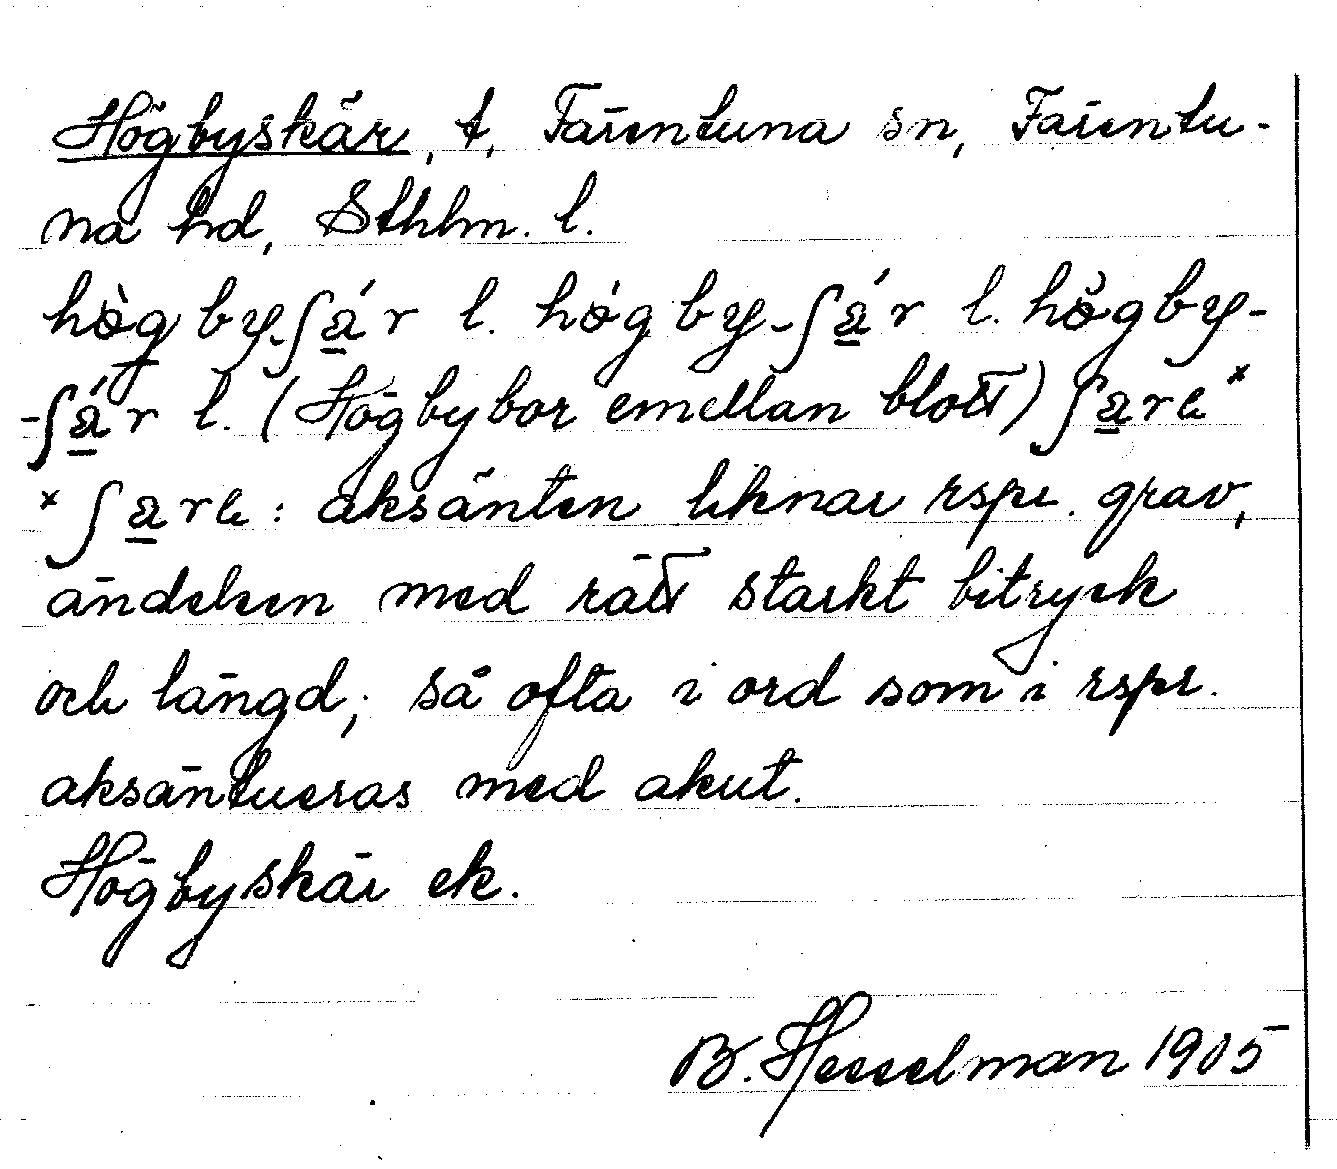 Högbyskär, t, Färentuna sn, Färentu-
na hd, Sthlm. l.
hø̀gby-ʃä́r l. hǿgby-ʃä́r l. hø̌gby-
-ʃä́r l. (Högbybor emellan blott) ʃäre ˣ
ˣ ʃäre: aksänten liknar rspr. grav,
ändelsen med rätt starkt bitryck
och längd; så ofta i ord som i rspr.
aksäntueras med akut.
Högbyskär ek.
B. Hesselman 1905